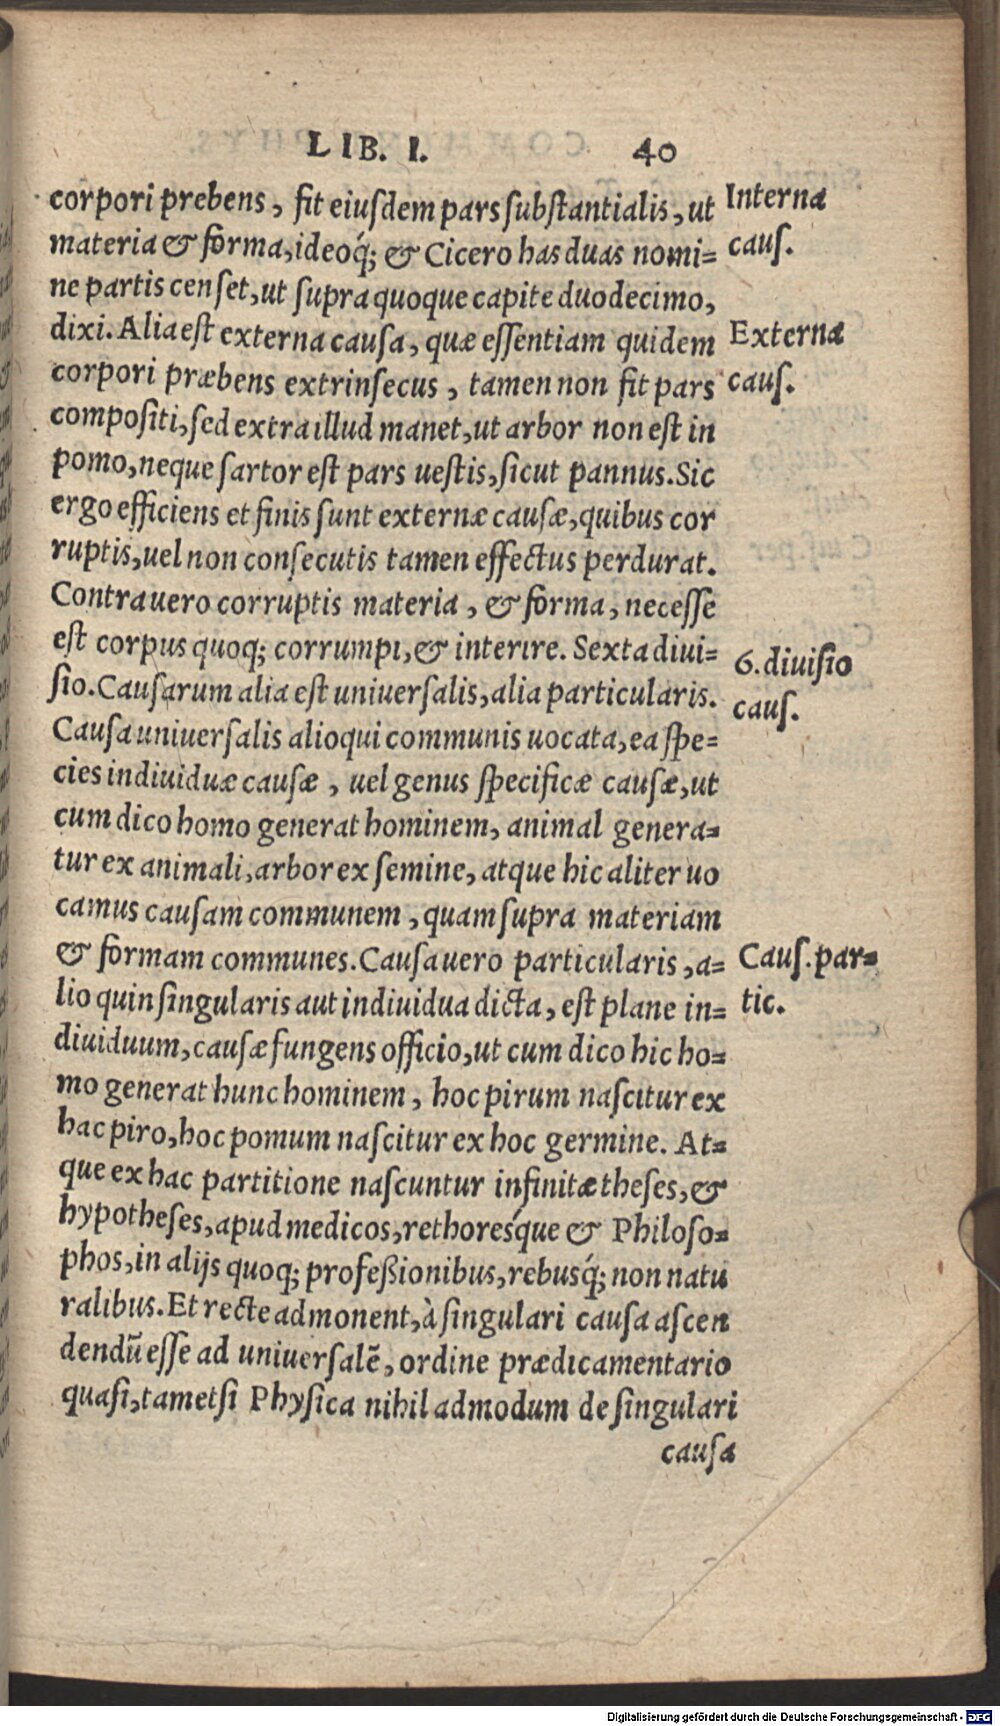 LIB. I. 40
corpori prebens, fit eiuſdem pars ſubſtantialis, ut
materia & forma, ideoq́; & Cicero has duas nomi=
ne partis cenſet, ut ſupra quoque capite duodecimo,
dixi. Alia eſt externa cauſa, quæ eſſentiam quidem
corpori præbens extrinſecus, tamen non fit pars
compoſiti, ſed extra illud manet, ut arbor non eſt in
pomo, neque ſartor eſt pars ueſtis, ſicut pannus. Sic
ergo efficiens et finis ſunt externæ cauſæ, quibus cor
ruptis, uel non conſecutis tamen effectus perdurat.
Contra uero corruptis materia, & forma, neceſſe
eſt corpus quoq; corrumpi, & interire. Sexta diui=
ſio. Cauſarum alia eſt uniuerſalis, alia particularis.
Cauſa uniuerſalis alioqui communis uocata, ea ſpe=
cies indiuiduæ cauſæ, uel genus ſpecificæ cauſæ, ut
cum dico homo generat hominem, animal genera=
tur ex animali, arbor ex ſemine, atque hic aliter uo
camus cauſam communem, quam ſupra materiam
& formam communes. Cauſa uero particularis, a=
lio quin ſingularis aut indiuidua dicta, eſt plane in=
diuiduum, cauſæ fungens officio, ut cum dico hic ho=
mo generat hunc hominem, hoc pirum naſcitur ex
hac piro, hoc pomum naſcitur ex hoc germine. At=
que ex hac partitione naſcuntur infinitæ theſes, &
hypotheſes, apud medicos, rethoresq́ue & Philoſo=
phos, in alijs quoq; profeßionibus, rebusq́; non natu
ralibus. Et recte admonent, à ſingulari cauſa aſcen
dendũ eſſe ad uniuerſalẽ, ordine prædicamentario
quaſi, tametſi Phyſica nihil admodum de ſingulari
cauſa
Interna
cauſ.
Externa
cauſ.
6. diuiſio
cauſ.
Cauſ. par=
tic.
Digitalisierung gefördert durch die Deutsche Forschungsgemeinschaft - DFG